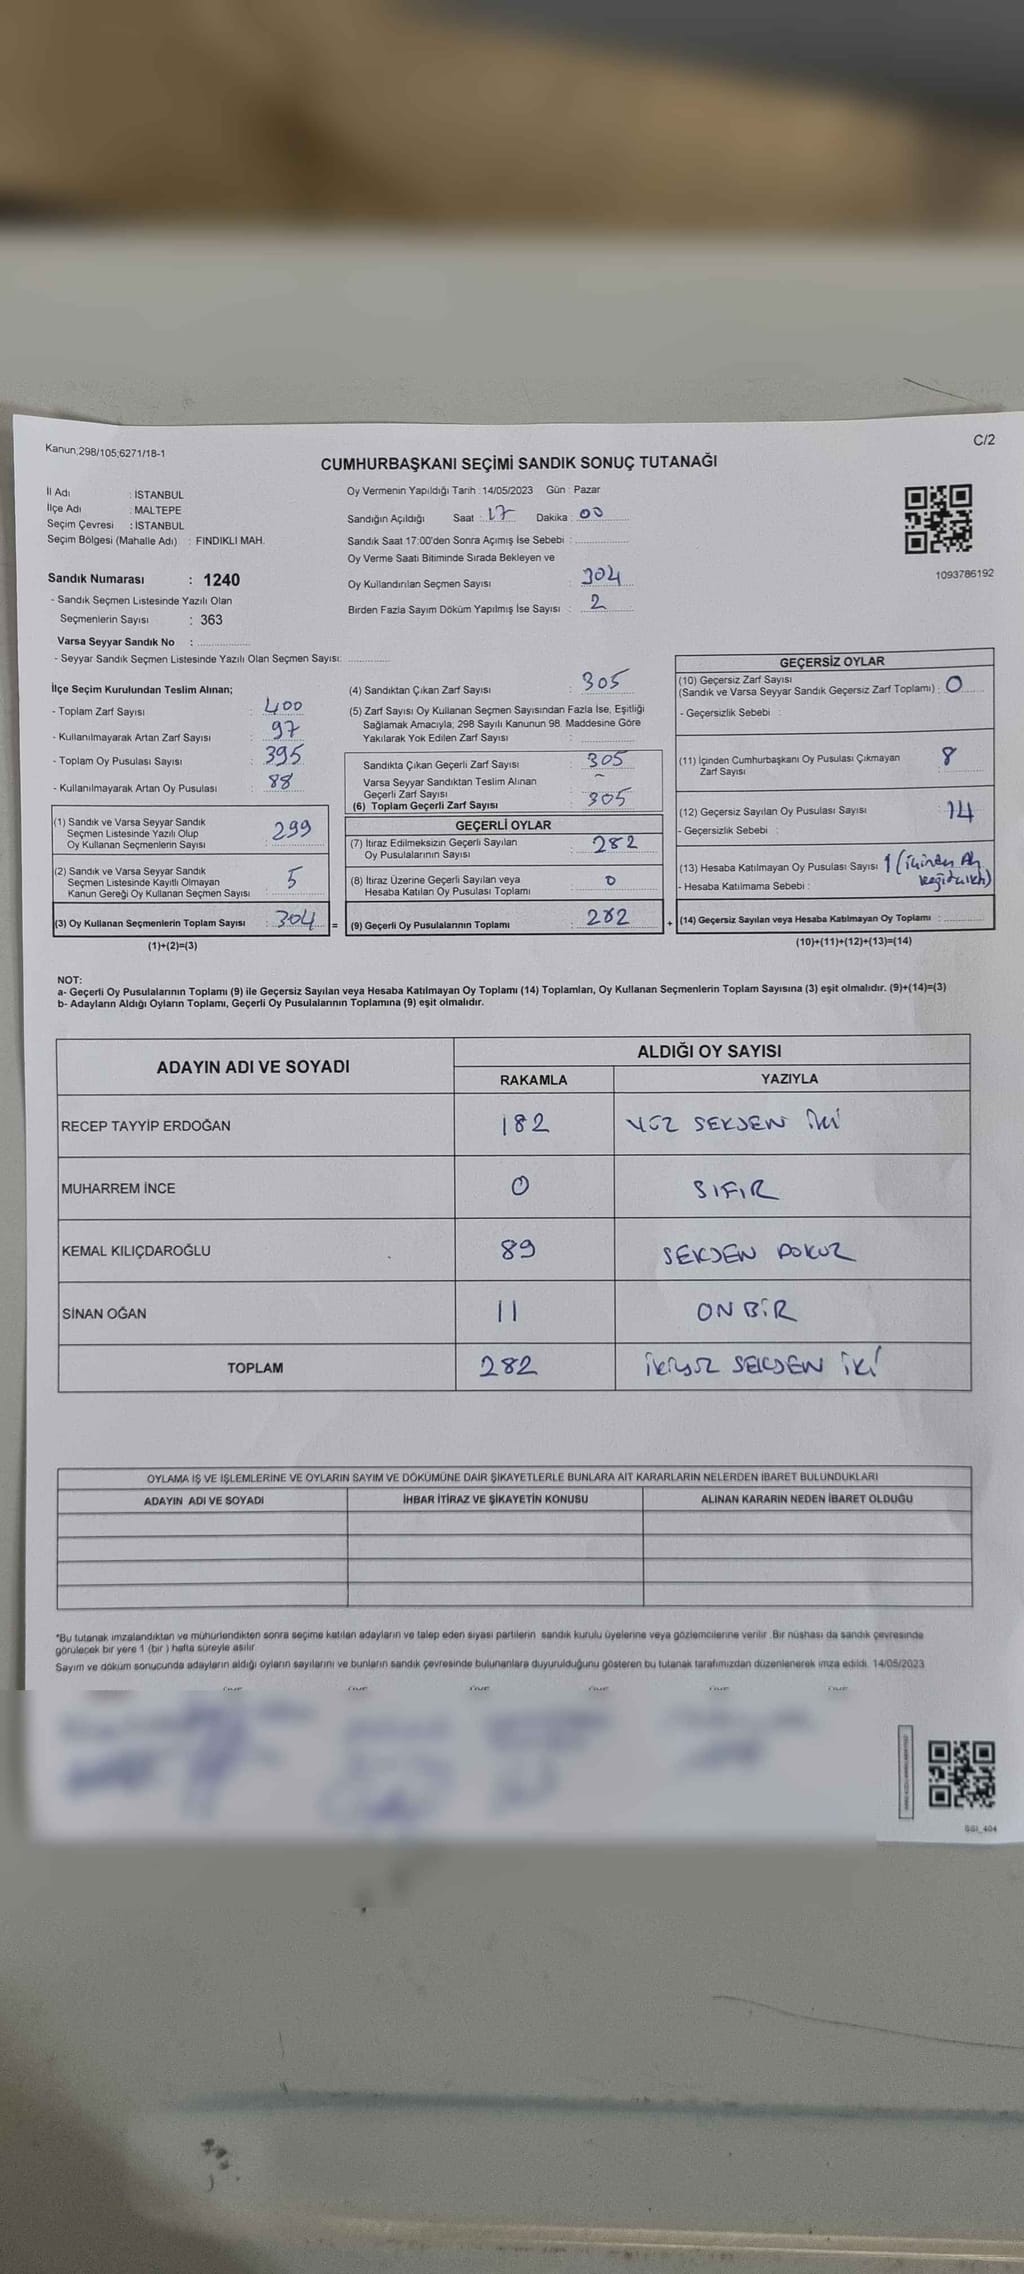 Kanun;298/105;6271/18-1
C/2
CUMHURBAŞKANI SEÇİMİ SANDIK SONUÇ TUTANAĞI
İl Adı : İSTANBUL
İlçe Adı : MALTEPE
Seçim Çevresi : İSTANBUL
Seçim Bölgesi (Mahalle Adı) : FINDIKLI MAH.
Sandık Numarası : 1240
- Sandık Seçmen Listesinde Yazılı Olan
Seçmenlerin Sayısı : 363
Varsa Seyyar Sandık No :
- Seyyar Sandık Seçmen Listesinde Yazılı Olan Seçmen Sayısı:
Oy Vermenin Yapıldığı Tarih : 14/05/2023 Gün : Pazar
Sandığın Açıldığı Saat : 17 Dakika : 00
Sandık Saat 17:00'den Sonra Açımış İse Sebebi :
Oy Verme Saati Bitiminde Sırada Bekleyen ve
Oy Kullandırılan Seçmen Sayısı : 304
Birden Fazla Sayım Döküm Yapılmış İse Sayısı : 2
1093786192
İlçe Seçim Kurulundan Teslim Alınan;
- Toplam Zarf Sayısı : 400
- Kullanılmayarak Artan Zarf Sayısı : 97
- Toplam Oy Pusulası Sayısı : 395
- Kullanılmayarak Artan Oy Pusulası : 88
(1) Sandık ve Varsa Seyyar Sandık
Seçmen Listesinde Yazılı Olup
Oy Kullanan Seçmenlerin Sayısı : 299
(2) Sandık ve Varsa Seyyar Sandık
Seçmen Listesinde Kayıtlı Olmayan
Kanun Gereği Oy Kullanan Seçmen Sayısı : 5
(3) Oy Kullanan Seçmenlerin Toplam Sayısı : 304 =
(1)+(2)=(3)
(4) Sandıktan Çıkan Zarf Sayısı : 305
(5) Zarf Sayısı Oy Kullanan Seçmen Sayısından Fazla İse, Eşitliği
Sağlamak Amacıyla; 298 Sayılı Kanunun 98. Maddesine Göre
Yakılarak Yok Edilen Zarf Sayısı :
Sandıkta Çıkan Geçerli Zarf Sayısı : 305
Varsa Seyyar Sandıktan Teslim Alınan
Geçerli Zarf Sayısı : -
(6) Toplam Geçerli Zarf Sayısı 305
GEÇERLİ OYLAR
(7) İtiraz Edilmeksizin Geçerli Sayılan
Oy Pusulalarının Sayısı : 282
(8) İtiraz Üzerine Geçerli Sayılan veya
Hesaba Katılan Oy Pusulası Toplamı : 0
(9) Geçerli Oy Pusulalarının Toplamı : 282 +
GEÇERSİZ OYLAR
(10) Geçersiz Zarf Sayısı
(Sandık ve Varsa Seyyar Sandık Geçersiz Zarf Toplamı) : 0
- Geçersizlik Sebebi :
(11) İçinden Cumhurbaşkanı Oy Pusulası Çıkmayan
Zarf Sayısı : 8
(12) Geçersiz Sayılan Oy Pusulası Sayısı : 14
- Geçersizlik Sebebi :
(13) Hesaba Katılmayan Oy Pusulası Sayısı : 1
- Hesaba Katılmama Sebebi :
(14) Geçersiz Sayılan veya Hesaba Katılmayan Oy Toplamı :
(10)+(11)+(12)+(13)=(14)
NOT:
a- Geçerli Oy Pusulalarının Toplamı (9) ile Geçersiz Sayılan veya Hesaba Katılmayan Oy Toplamı (14) Toplamları, Oy Kullanan Seçmenlerin Toplam Sayısına (3) eşit olmalıdır. (9)+(14)=(3)
b- Adayların Aldığı Oyların Toplamı, Geçerli Oy Pusulalarının Toplamına (9) eşit olmalıdır.
ADAYIN ADI VE SOYADI
ALDIĞI OY SAYISI
RAKAMLA YAZIYLA
RECEP TAYYİP ERDOĞAN 182 YÜZ SEKSEN İKİ
MUHARREM İNCE 0 SIFIR
KEMAL KILIÇDAROĞLU 89 SEKSEN DOKUZ
SİNAN OĞAN 11 ON BİR
TOPLAM 282 İKİYÜZ SEKSEN İKİ
OYLAMA İŞ VE İŞLEMLERİNE VE OYLARIN SAYIM VE DÖKÜMÜNE DAİR ŞİKAYETLERLE BUNLARA AİT KARARLARIN NELERDEN İBARET BULUNDUKLARI
ADAYIN ADI VE SOYADI İHBAR İTİRAZ VE ŞİKAYETİN KONUSU ALINAN KARARIN NEDEN İBARET OLDUĞU
*Bu tutanak imzalandıktan ve mühürlendikten sonra seçime katılan adayların ve talep eden siyasi partilerin sandık kurulu üyelerine veya gözlemcilerine verilir. Bir nüshası da sandık çevresinde
görülecek bir yere 1 (bir ) hafta süreyle asılır.
Sayım ve döküm sonucunda adayların aldığı oyların sayılarını ve bunların sandık çevresinde bulunanlara duyurulduğunu gösteren bu tutanak tarafımızdan düzenlenerek imza edildi. 14/05/2023
SSI_404